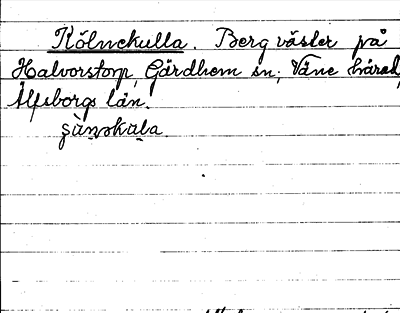 Kölnekulla. Berg väster på
Halvorstorp, Gärdhem sn, Väne härad,
Älfsborgs län.